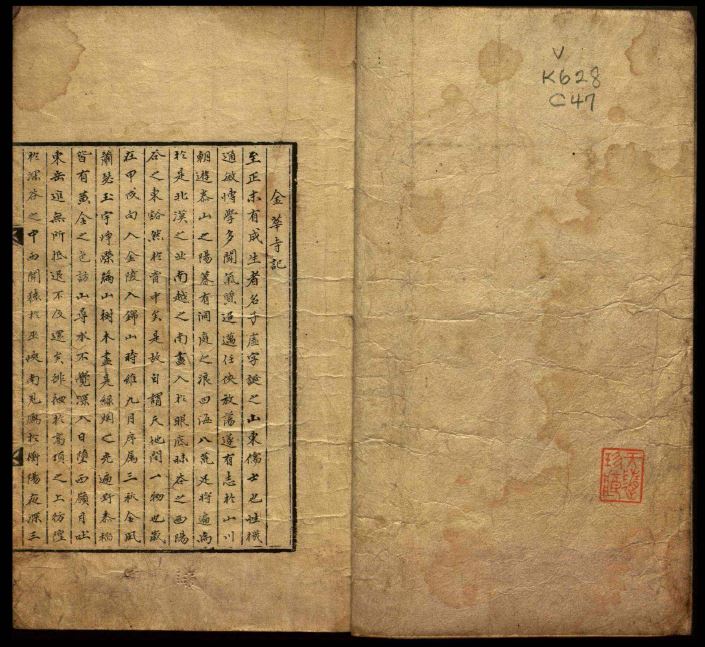 金華寺記
至正末有成生者名子虛字誕之山東儒士也性機
通敏博學多聞氣質迢邁任俠放蕩遂有志於山川
朝遊泰山之陽暮有洞庭之浪四海八荒足將遍焉
於是北漠之北南越之南盡入於眼底昧谷之西暘
谷之東豁然於胷中矣是故自謂天地間一物也歲
在甲戌向入金陵入錦山時維九月序屬三秋金風
蕭瑟玉宇崢嶸滿山樹木盡是綠烟之光遍野黍稷
皆有黃金之色訪山尋水不覺深入日墮西嶺月出
東岳進無所抵退不及還矣徘徊於高頂之上彷徨
於深谷之中西聞猿於巫峽南見鴈於衡陽夜深三
V
K628
C47